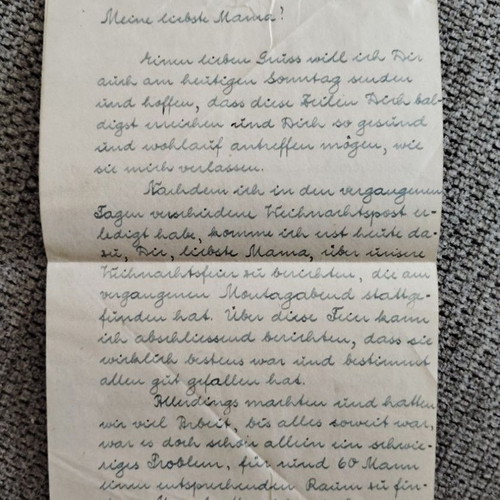 Meine liebste Mama!
Einen lieben Gruss will ich Dir
auch am heutigen Sonntag senden
und hoffen, dass diese Zeilen Dich bal-
digst erreichen und Dich so gesund
und wohlauf antreffen mögen, wie
sie mich verlassen.
Nachdem ich in den vergangenen
Tagen verschiedene Weihnachtspost er-
ledigt habe, komme ich erst heute da-
zu, Dir, liebste Mama, über unsere
Weihnachtsfeier zu berichten, die am
vergangenen Montagabend stattge-
funden hat. Über diese Feier kann
ich abschliessend berichten, dass sie
wirklich bestens war und bestimmt
allen gut gefallen hat.
Allerdings machten und hatten
wir viel Arbeit, bis alles soweit war,
war es doch schon allein ein schwie-
riges Problem, für rund 60 Mann
einen entsprechenden Raum zu fin-